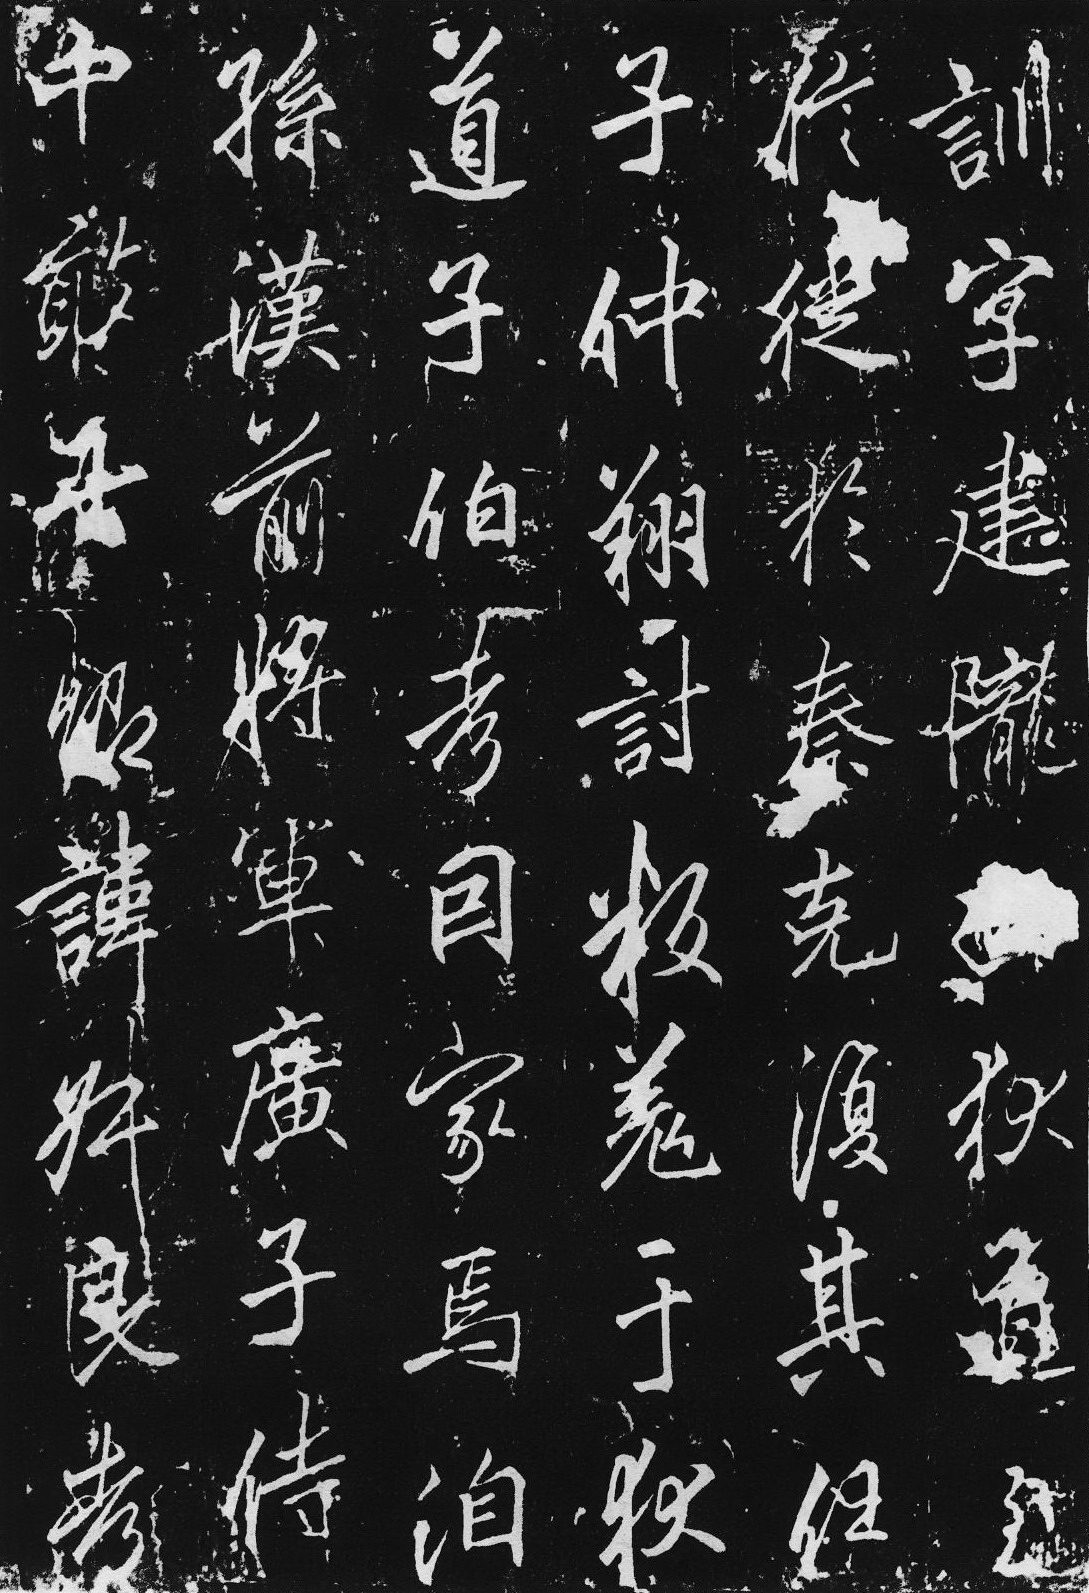 訓字建隴狄道
於徙於秦克復其任
子仲翔討叛羌于狄
道子伯考因家焉洎
孫漢前將軍廣子侍
中敢昭諱良考